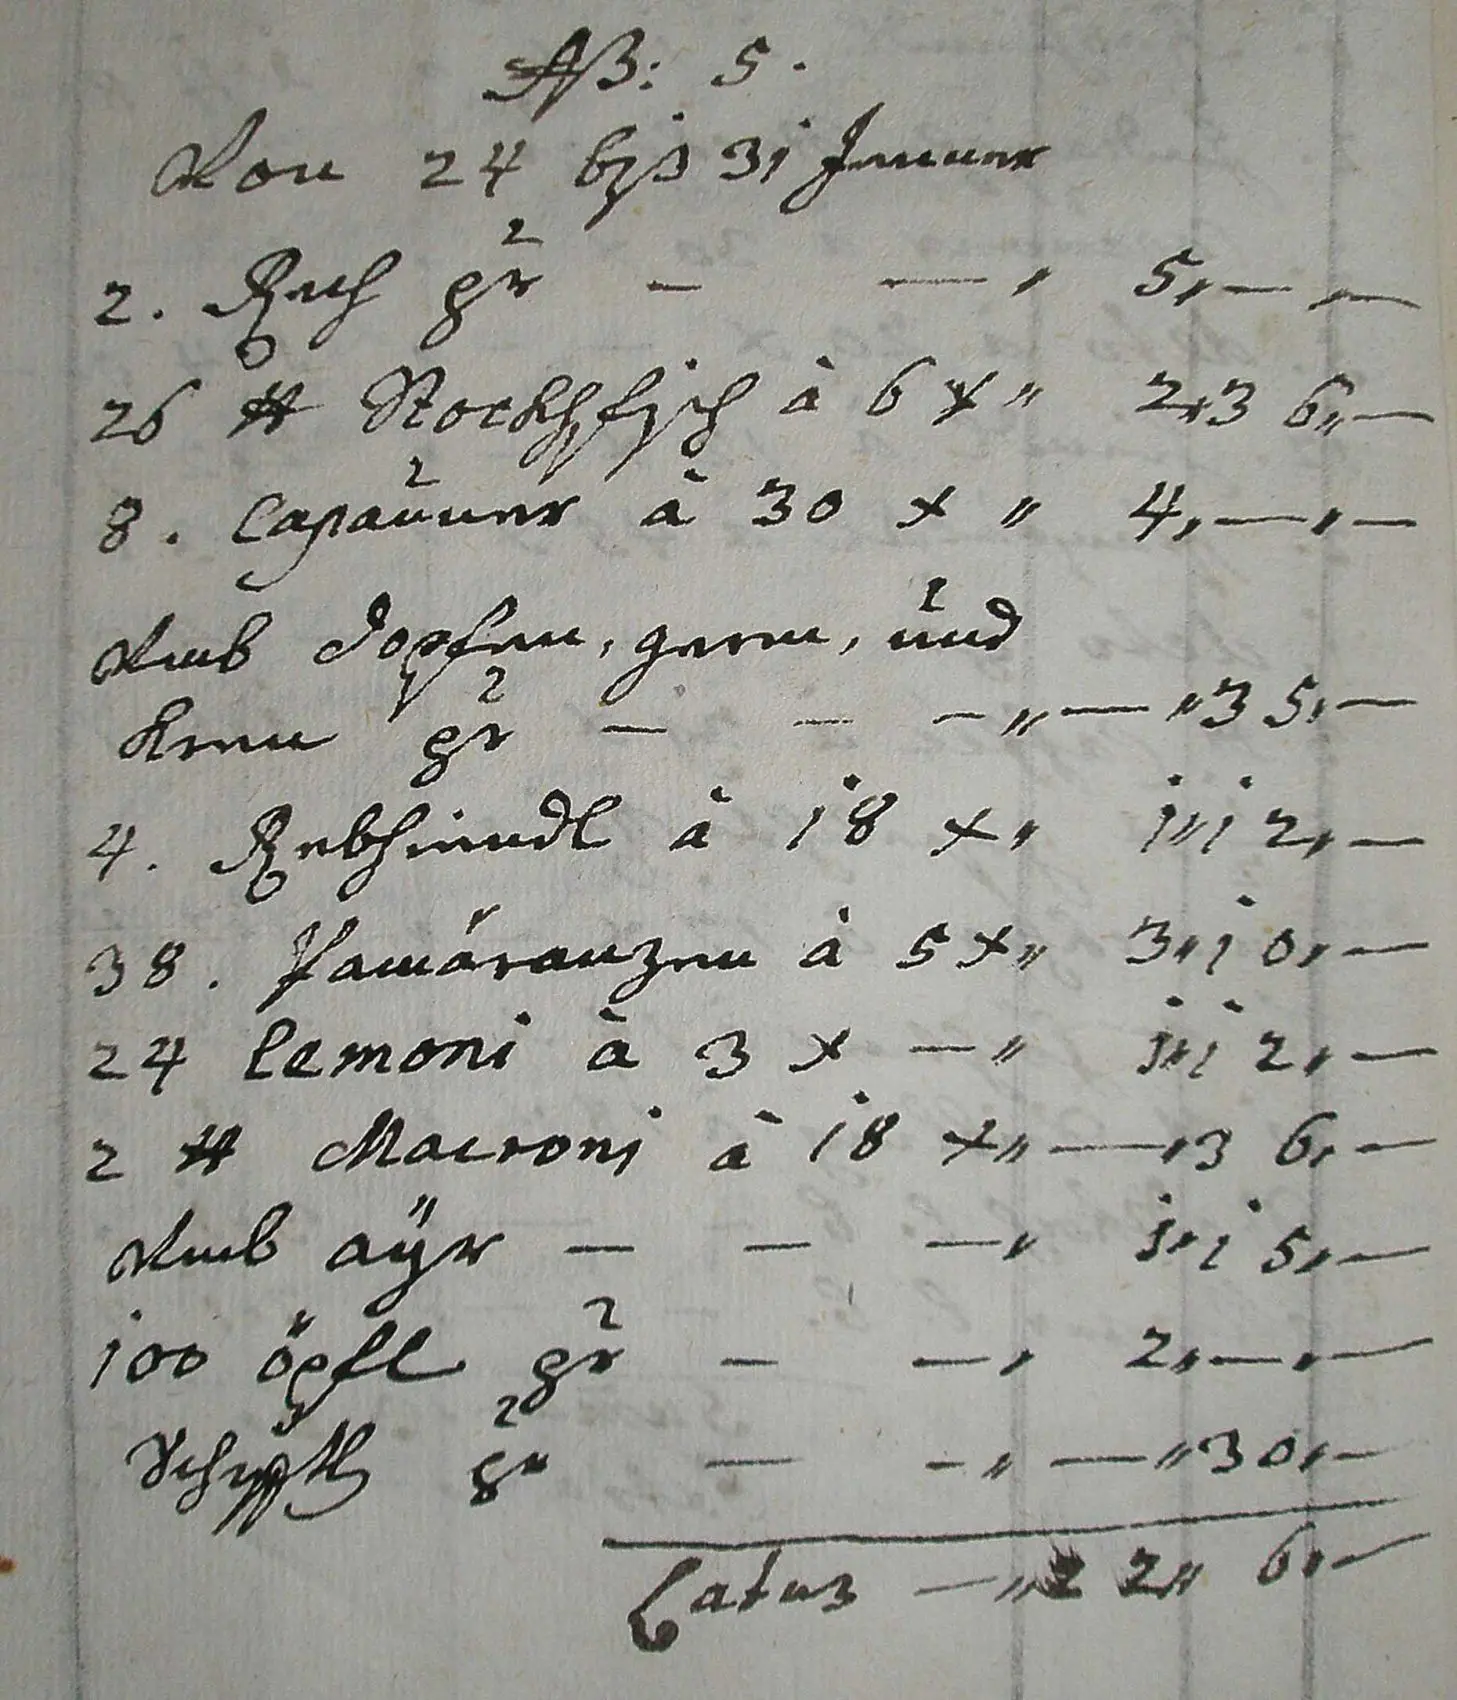 AB: 5.
Von 24 biß 31 Jenner
2. Rech pr — — „ 5„— „—
26 ℔ Stockhfisch à 6 x „ 2„36„—
8. Capauner à 30 x „ 4„—„—
Vmb Dopfen, germ, und
Kren pr — — —„—„35„—
4. Rebhiendl à 18 x„ 1„12„—
38. Pamäranzen à 5 x„ 3„10„—
24 Lemoni à 3 x —„ 1„12„—
2 ℔ Macroni à 18 x„—„36„—
Vmb aÿr — — —„ 1„15„—
100 öpfl pr — —„ 2„—„—
pr — —„—„30„—
Latus —„22„6„—